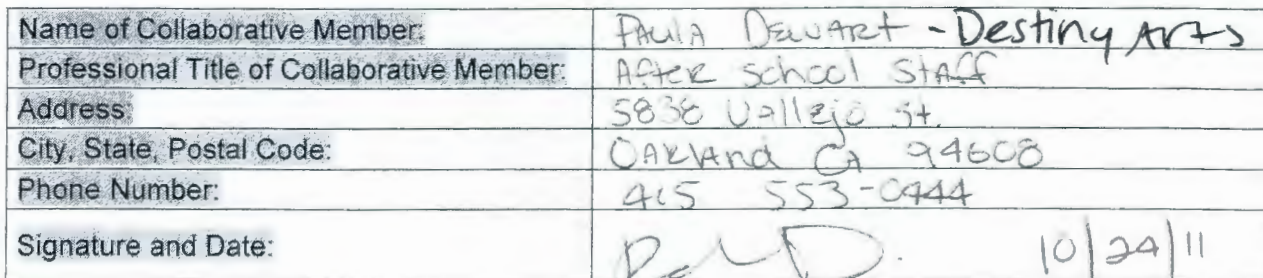 Name of Collaborative Member: PAULA DEWART - Destiny Arts
Professional Title of Collaborative Member: After School Staff
Address: 5838 Vallejo St.
City, State, Postal Code: Oakland CA 94608
Phone Number: 415 553-0444
Signature and Date: 10/24/11